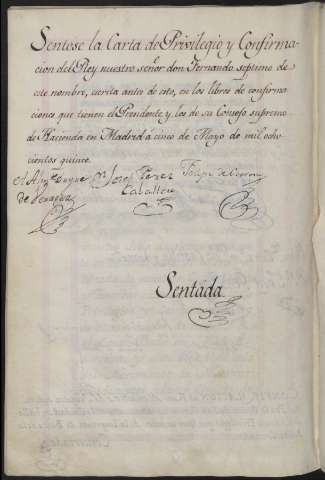 Sentose la Carta de Privilegio y Confirma-
cion del Rey nuestro señor don Fernando septimo de
este nombre, escrita antes de esto, en los libros de confirma-
ciones que tienen el Presidente y los de su Consejo supremo
de Hacienda en Madrid á cinco de Mayo de mil ocho
cientos quince.
Duque Josef Perez Felipe
de Veragua Caballero
Sentada.